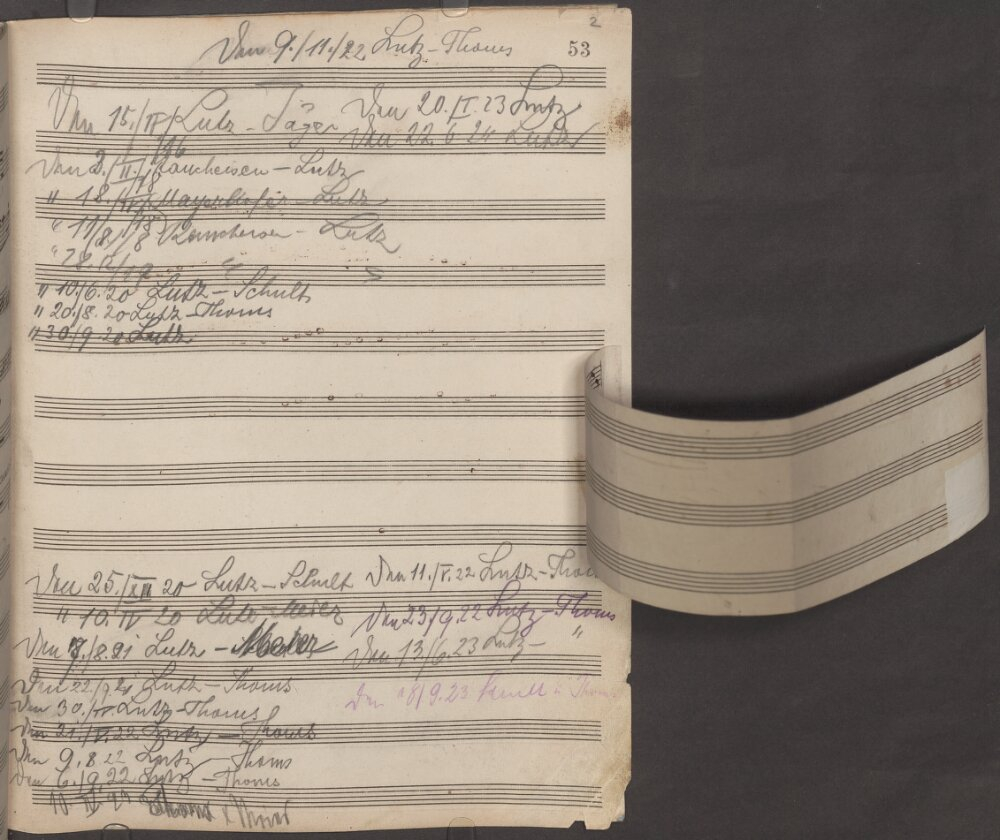 2
53
Den 9./11./22 Lutz-Thoms
Den 15./IV Lutz - Jäger
16
Den 20. II. 23 Lutz
Den 22. 6 24 Lutz
Den 2./II. 18 Raucheisen - Lutz
" 18./IV. Mayerhofer - Lutz
" 11/8/18 Raucheisen - Lutz
" 28.
" 10./6. 20 Lutz - Schult
" 20./8. 20 Lutz-Thoms
" 30/9 20 Lutz
Den 25./XII 20 Lutz-Schult
" 10. IV 20 Lutz-Meier
Den 7./8.21 Lutz - Meier
Den 22./9. 21 Lutz - Thoms
Den 30./ Lutz-Thoms
Den 21./V.22 Lutz - Thoms
Den 9. 8 22 Lutz - Thoms
Den 6./9. 22 Lutz - Thoms
10 IV 24 Thoms & Meier
Den 11./V.22 Lutz-Thoms
Den 23/9.22 Lutz-Thoms
Den 13/6.23 Lutz- "
Den 18/9.23 Thoms